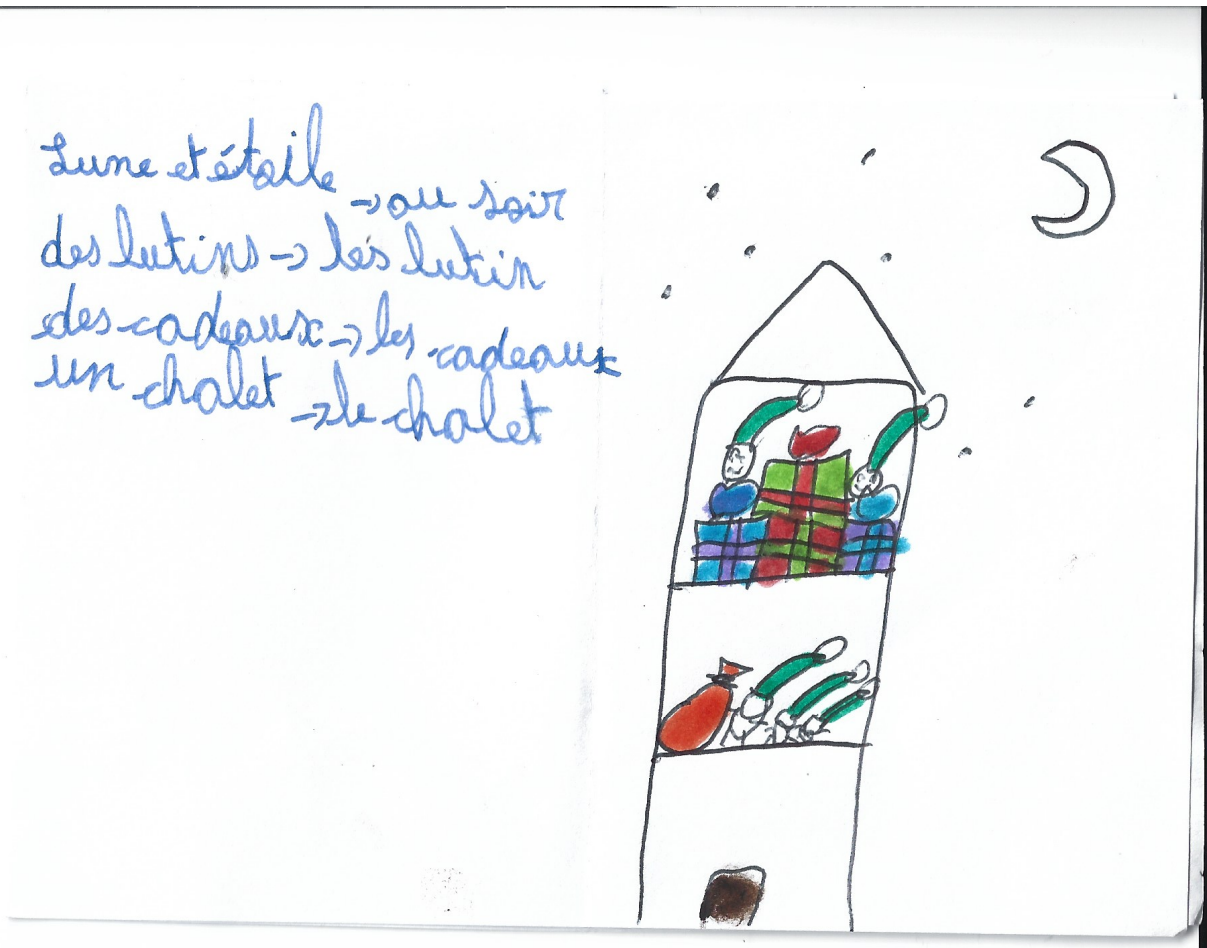 Lune et étoile → au soir
des lutins → les lutin
des cadeaux → les cadeaux
un chalet → le chalet